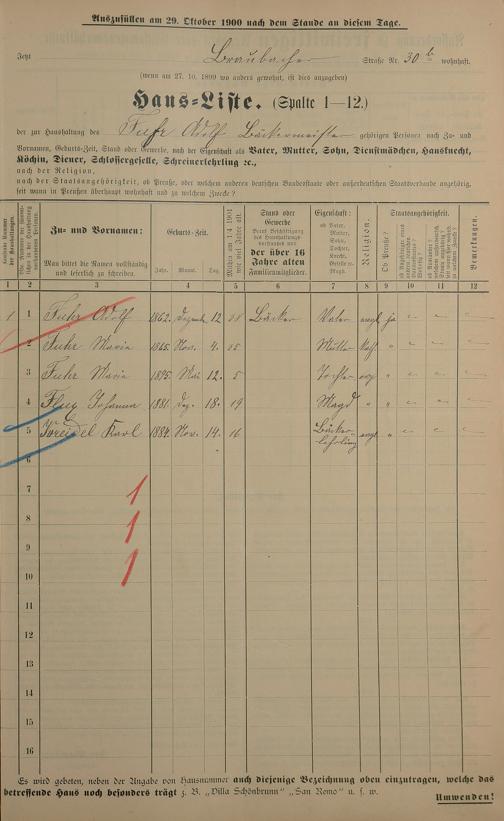 Auszufüllen am 29. Oktober 1900 nach dem Stande an diesem Tage.
Jetzt Braubacher Straße Nr. 30 b wohnhaft.
(wenn am 27. 10. 1899 wo anders gewohnt, ist dies anzugeben)
Haus-Liste. (Spalte 1—12.)
der zur Haushaltung des Fuhr Adolf Bäckermeister gehörigen Personen nach Zu- und
Vornamen, Geburts-Zeit, Stand oder Gewerbe, nach der Eigenschaft als Vater, Mutter, Sohn, Dienstmädchen, Hausknecht,
Köchin, Diener, Schlossergeselle, Schreinerlehrling ꝛc.,
nach der Religion,
nach der Staatsangehörigkeit, ob Preuße, oder welchem anderen deutschen Bundesstaate oder außerdeutschen Staatsverbande angehörig,
seit wann in Preußen überhaupt wohnhaft und zu welchem Zwecke?
Zu- und Vornamen:
Man bittet die Namen vollständig und leserlich zu schreiben.
Geburts-Zeit.
Jahr. Monat. Tag.
Mithin am 1/4 1901 wie viel Jahre alt.
Stand oder Gewerbe
der über 16 Jahre alten Familienmitglieder.
Eigenschaft:
ob Vater, Mutter, Sohn, Tochter, Knecht, Geselle ꝛc. Magd.
Religion.
Staatsangehörigkeit.
Ob Preuße?
Bemerkungen.
1 2 3 4 5 6 7 8 9 10 11 12
1 1 Fuhr Adolf 1862. Dezember 12 Bäcker Vater evgl. ja
2 Fuhr Maria 1865. Nov. 4. Mutter kath. "
3 Fuhr Maria 1895. Mai 12. 5 Tochter evg. "
4 Johanna 1881. Dez. 18. 19 Magd " "
5 Karl 1884. Nov. 14. 16 Bäcker-lehrling evgl. "
6
7 1
8 1
9
10 1
11
12
13
14
15
16
Es wird gebeten, neben der Angabe von Hausnummer auch diejenige Bezeichnung oben einzutragen, welche das
betreffende Haus noch besonders trägt z. B. "Villa Schönbrunn" "San Remo" u. s. w.
Umwenden!